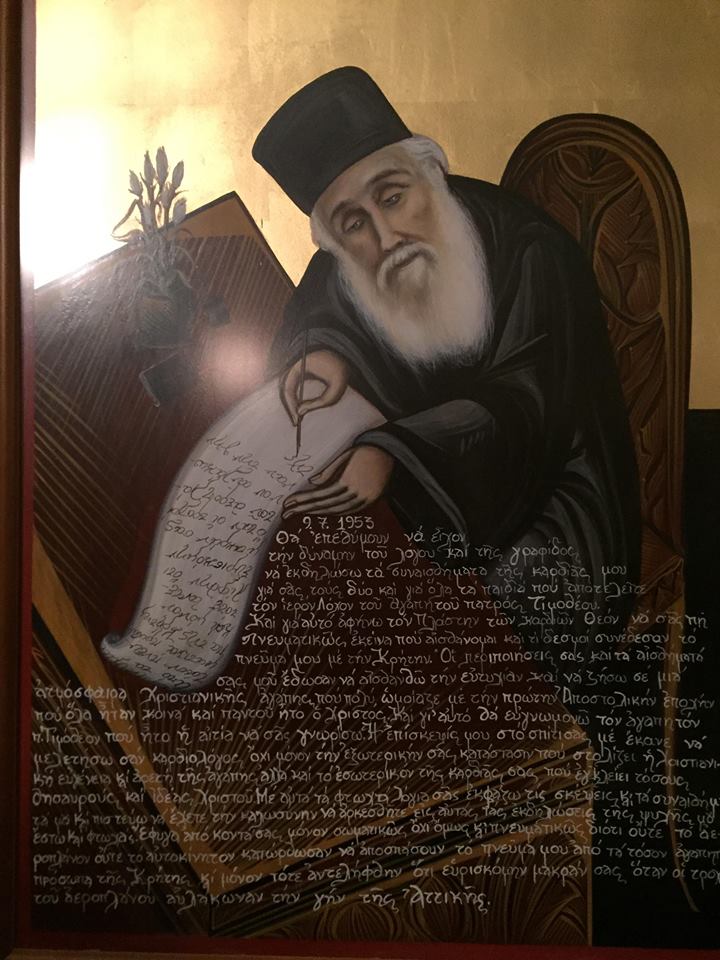 9.7.1953
Θά ἐπεθύμουν νά εἶχον
τήν δύναμην τοῦ λόγου καί τῆς γραφίδος,
νά ἐκδηλώσω τά συναισθήματα τῆς καρδίας μου
γιά σᾶς τούς δύο καί γιά ὅλα τά παιδιά πού ἀποτελεῖτε
τόν ἱερόν Λόχον τοῦ ἀγαπητοῦ πατρός Τιμοθέου.
Καί γι αὐτό ἀφήνω τόν Πλάστην τῶν καρδιῶν Θεόν νά σᾶς πῆ
πνευματικῶς ἐκεῖνα πού αἰσθάνομαι καί τί δεσμοί συνέδεσαν τό
πνεῦμα μου μέ τήν Κρήτην. Οἱ περιποιήσεις σας καί τα αἰσθήματά
σας, μοῦ ἔδωσαν νά αἰσθανθῶ τήν εὐτυχίαν καί νά ζήσω σέ μιά
ἀτμόσφαιρα Χριστιανικῆς ἀγάπης, πού πολύ ὡμοίαζε μέ τήν πρώτην Ἀποστολικήν ἐποχήν
πού ὅλα ἦταν κοινά καί παντοῦ ἦτο ὁ Χριστός. Καί γι αὐτό θά εὐγνωμονῶ τόν ἀγαπητόν
π. Τιμόθεον πού ἦτο ἡ αἰτία νά σᾶς γνωρίσω. Ἡ ἐπίσκεψίς μου στό σπίτι σας μέ ἔκανε νά
μελετήσω σάν καρδιολόγος, ὄχι μόνον τήν ἐξωτερικήν σας κατάστασιν πού στολίζει ἡ χριστιανι-
κή εὐγένεια κι ἀρετή τῆς ἀγάπης, ἀλλά καί τό ἐσωτερικόν τῆς καρδιᾶς σας πού ἐγκλείει τόσους
θησαυρούς καί ἰδέας Χριστοῦ. Μέ αὐτά τά φτωχά λόγια σᾶς ἐκφράζω τίς σκέψεις καί τά συναισθήμα
τά μου κι πιστεύω νά ἔχετε τήν καλωσύνην νά ἀρκεσθῆτε εἰς αὐτάς τάς ἐκδηλώσεις τῆς ψυχῆς μου
ἔστω καί φτωχάς. Ἔφυγα ἀπό κοντά σας, μόνον σωματικῶς, ὄχι ὅμως κι πνευματικῶς διότι οὔτε τό ἀε
ροπλάνον οὔτε τό αὐτοκίνητον κατώρθωσαν νά ἀποσπάσουν τό πνεῦμα μου ἀπό τά τόσον ἀγαπητ
πρόσωπα τῆς Κρήτης κι μόνον τότε ἀντελήφθην ὅτι εὑρισκόμην μακράν σας ὅταν οἱ τροχ
τοῦ ἀεροπλάνου αὐλάκωναν τήν γῆν τῆς Ἀττικῆς.